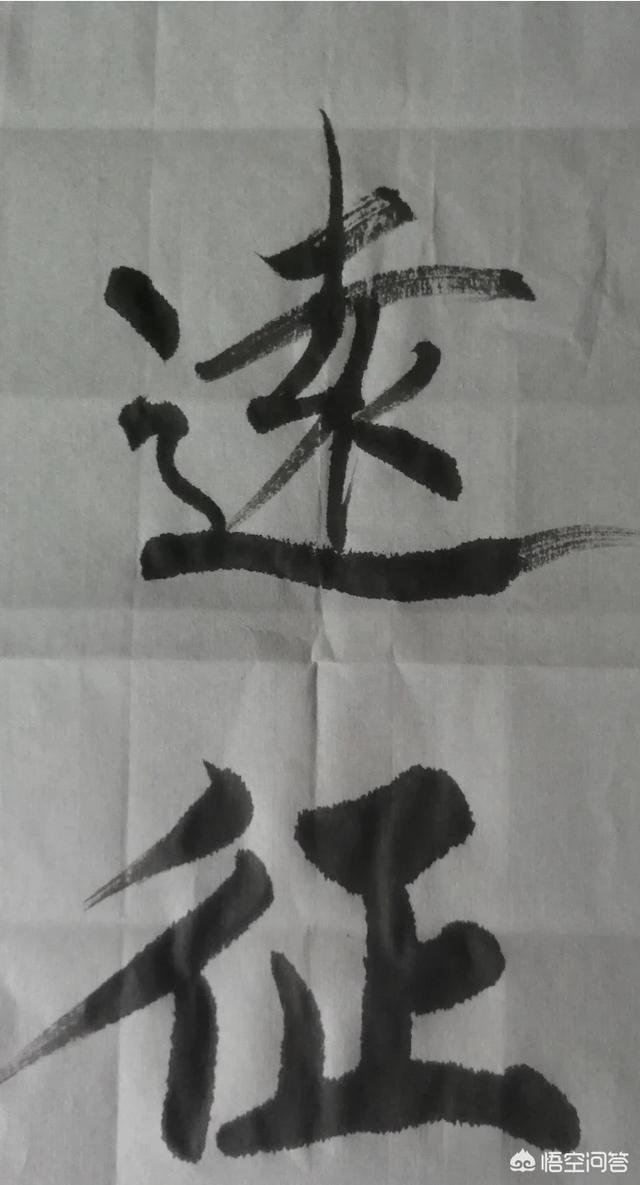 遠
征
悟空问答